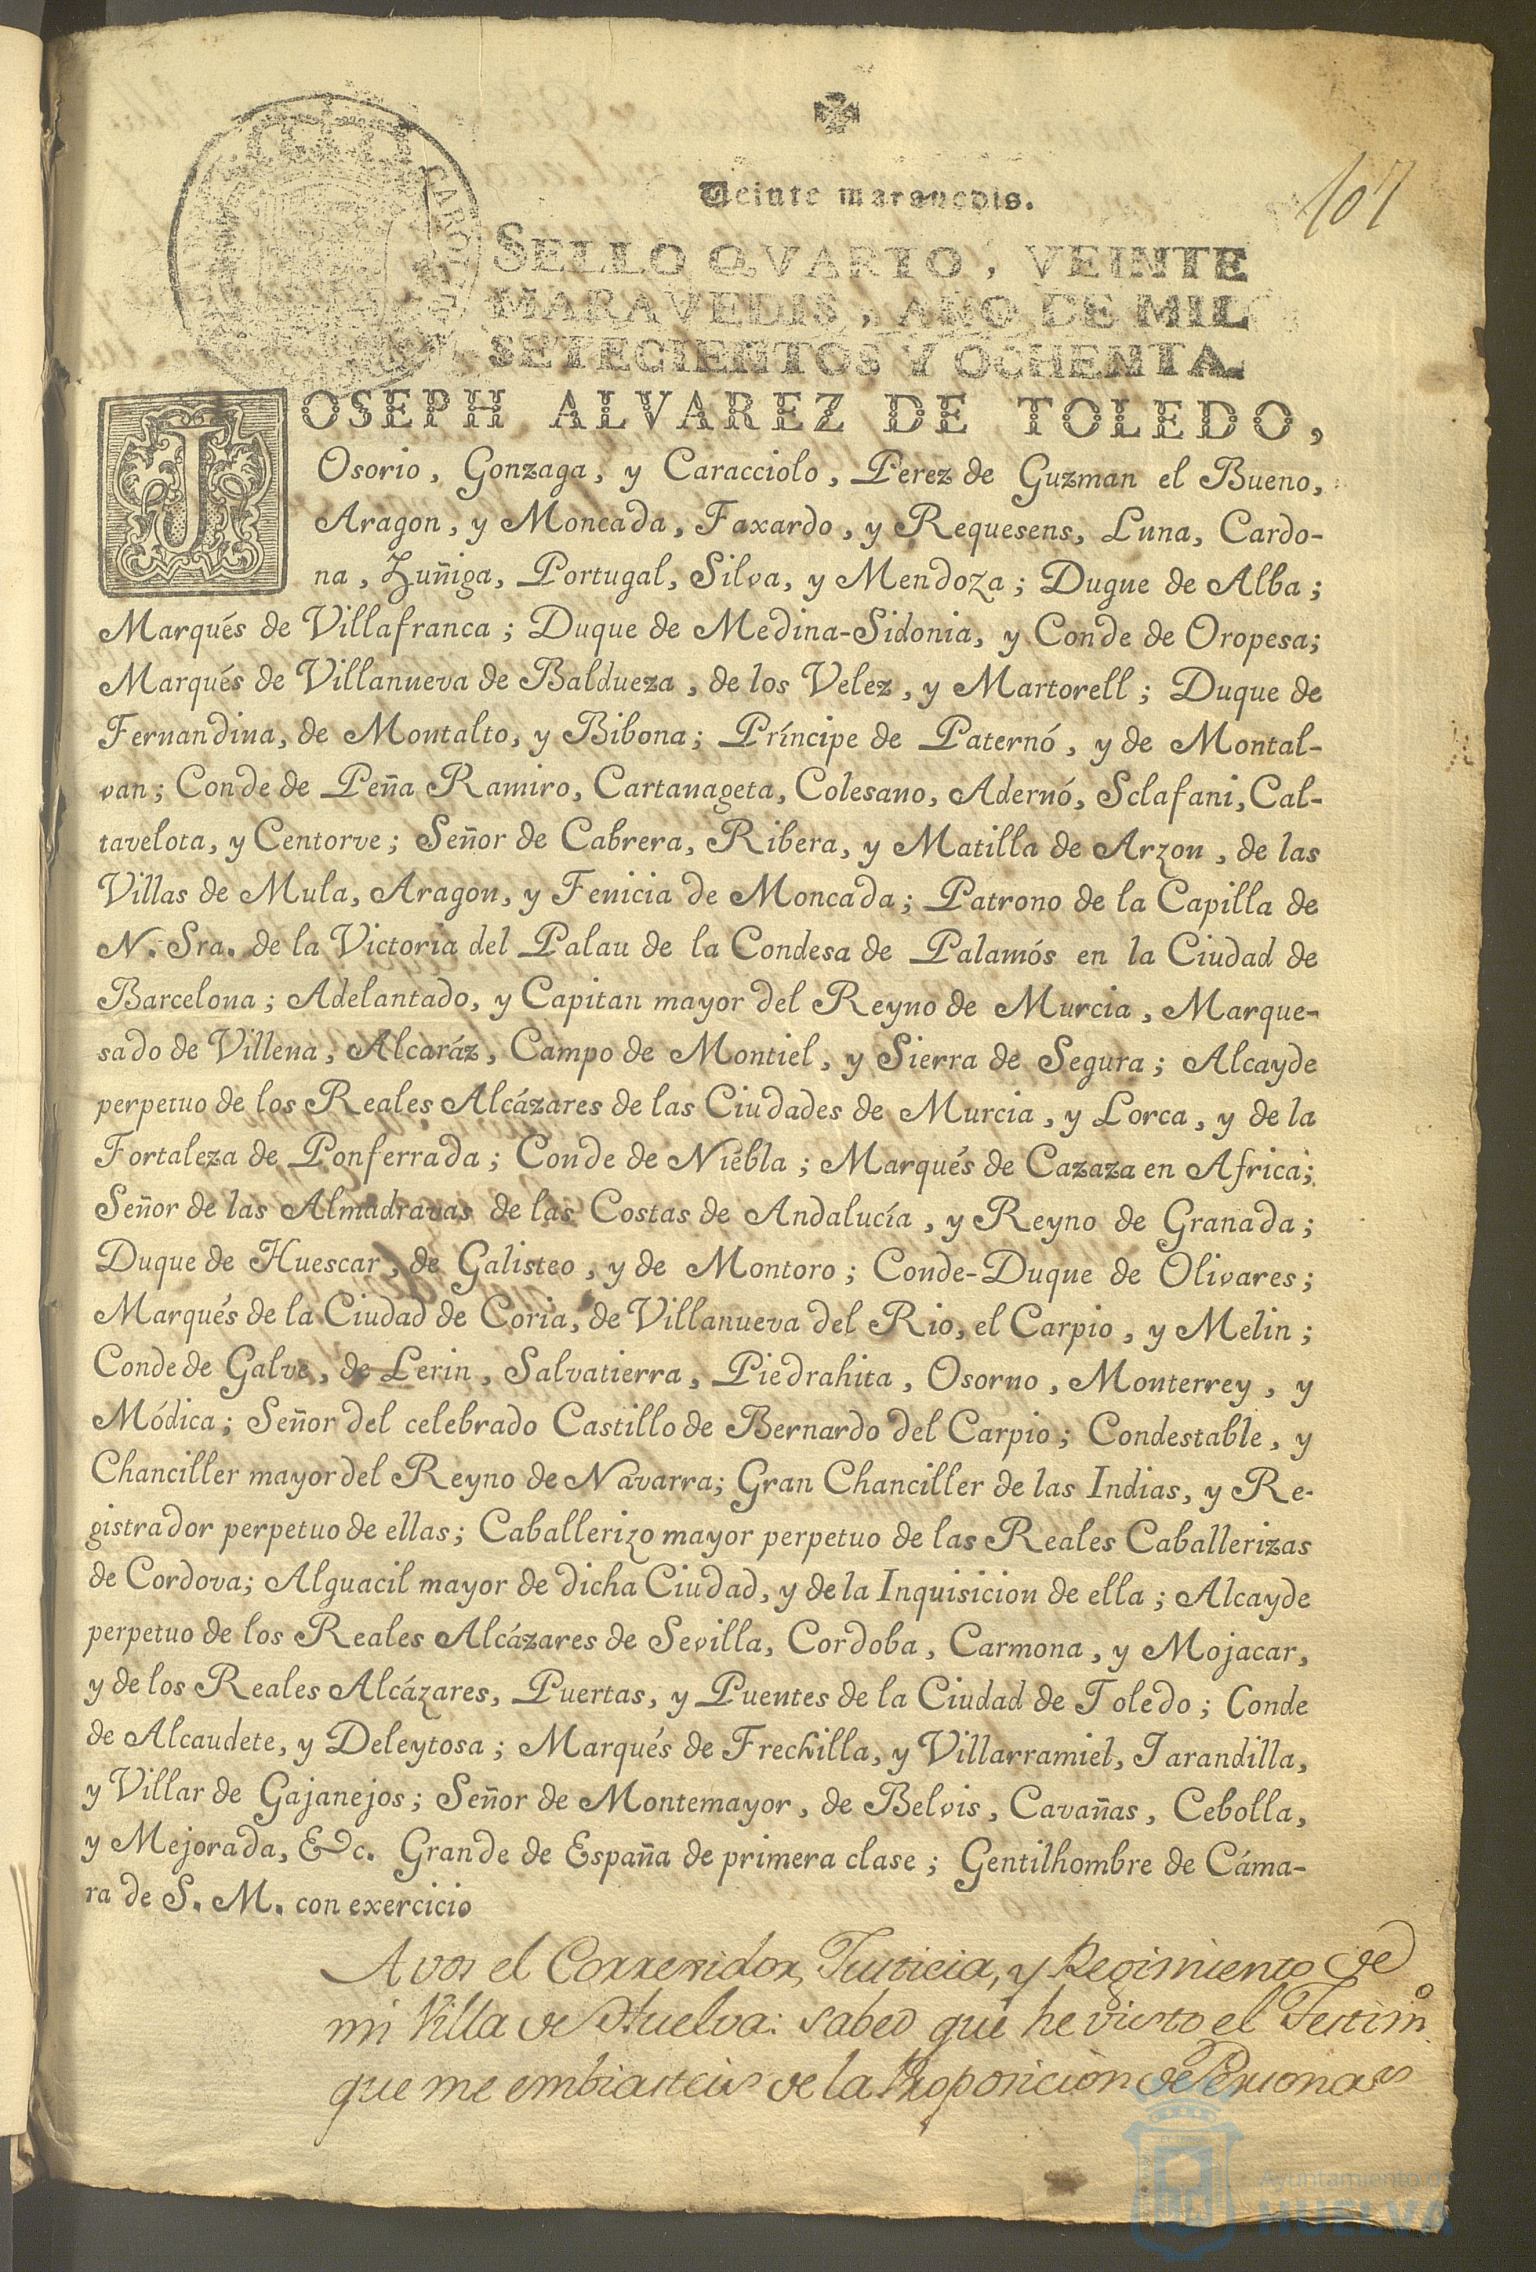 107
Veinte maravedis.
SELLO QVARTO, VEINTE
MARAVEDIS, AÑO DE MIL
SETECIENTOS Y OCHENTA.
JOSEPH ALVAREZ DE TOLEDO,
Osorio, Gonzaga, y Caracciolo, Perez de Guzman el Bueno,
Aragon, y Moncada, Faxardo, y Requesens, Luna, Cardo-
na, Zuñiga, Portugal, Silva, y Mendoza; Duque de Alba;
Marqués de Villafranca; Duque de Medina-Sidonia, y Conde de Oropesa;
Marqués de Villanueva de Baldueza, de los Velez, y Martorell; Duque de
Fernandina, de Montalto, y Bibona; Príncipe de Paternó, y de Montal-
van; Conde de Peña Ramiro, Cartanageta, Colesano, Adernó, Sclafani, Cal-
tavelota, y Centorve; Señor de Cabrera, Ribera, y Matilla de Arzon, de las
Villas de Mula, Aragon, y Fenicia de Moncada; Patrono de la Capilla de
N. Sra. de la Victoria del Palau de la Condesa de Palamós en la Ciudad de
Barcelona; Adelantado, y Capitan mayor del Reyno de Murcia, Marque-
sado de Villena, Alcaráz, Campo de Montiel, y Sierra de Segura; Alcayde
perpetuo de los Reales Alcázares de las Ciudades de Murcia, y Lorca, y de la
Fortaleza de Ponferrada; Conde de Niébla; Marqués de Cazaza en Africa;
Señor de las Almadravas de las Costas de Andalucía, y Reyno de Granada;
Duque de Huescar, de Galisteo, y de Montoro; Conde-Duque de Olivares;
Marqués de la Ciudad de Coria, de Villanueva del Rio, el Carpio, y Melin;
Conde de Galve, de Lerin, Salvatierra, Piedrahita, Osorno, Monterrey, y
Módica; Señor del celebrado Castillo de Bernardo del Carpio; Condestable, y
Chanciller mayor del Reyno de Navarra; Gran Chanciller de las Indias, y Re-
gistrador perpetuo de ellas; Caballerizo mayor perpetuo de las Reales Caballerizas
de Cordova; Alguacil mayor de dicha Ciudad, y de la Inquisicion de ella; Alcayde
perpetuo de los Reales Alcázares de Sevilla, Cordoba, Carmona, y Mojacar,
y de los Reales Alcázares, Puertas, y Puentes de la Ciudad de Toledo; Conde
de Alcaudete, y Deleytosa; Marqués de Frechilla, y Villarramiel, Jarandilla,
y Villar de Gajanejos; Señor de Montemayor, de Belvis, Cavañas, Cebolla,
y Mejorada, &c. Grande de España de primera clase; Gentilhombre de Cáma-
ra de S. M. con exercicio
A vos el Correxidor, Justicia, y Regimiento de
mi Villa de Huelva: sabed que he visto el Testimº
que me embiasteis de la Proposicion de Personas
Ayuntamiento de
HUELVA